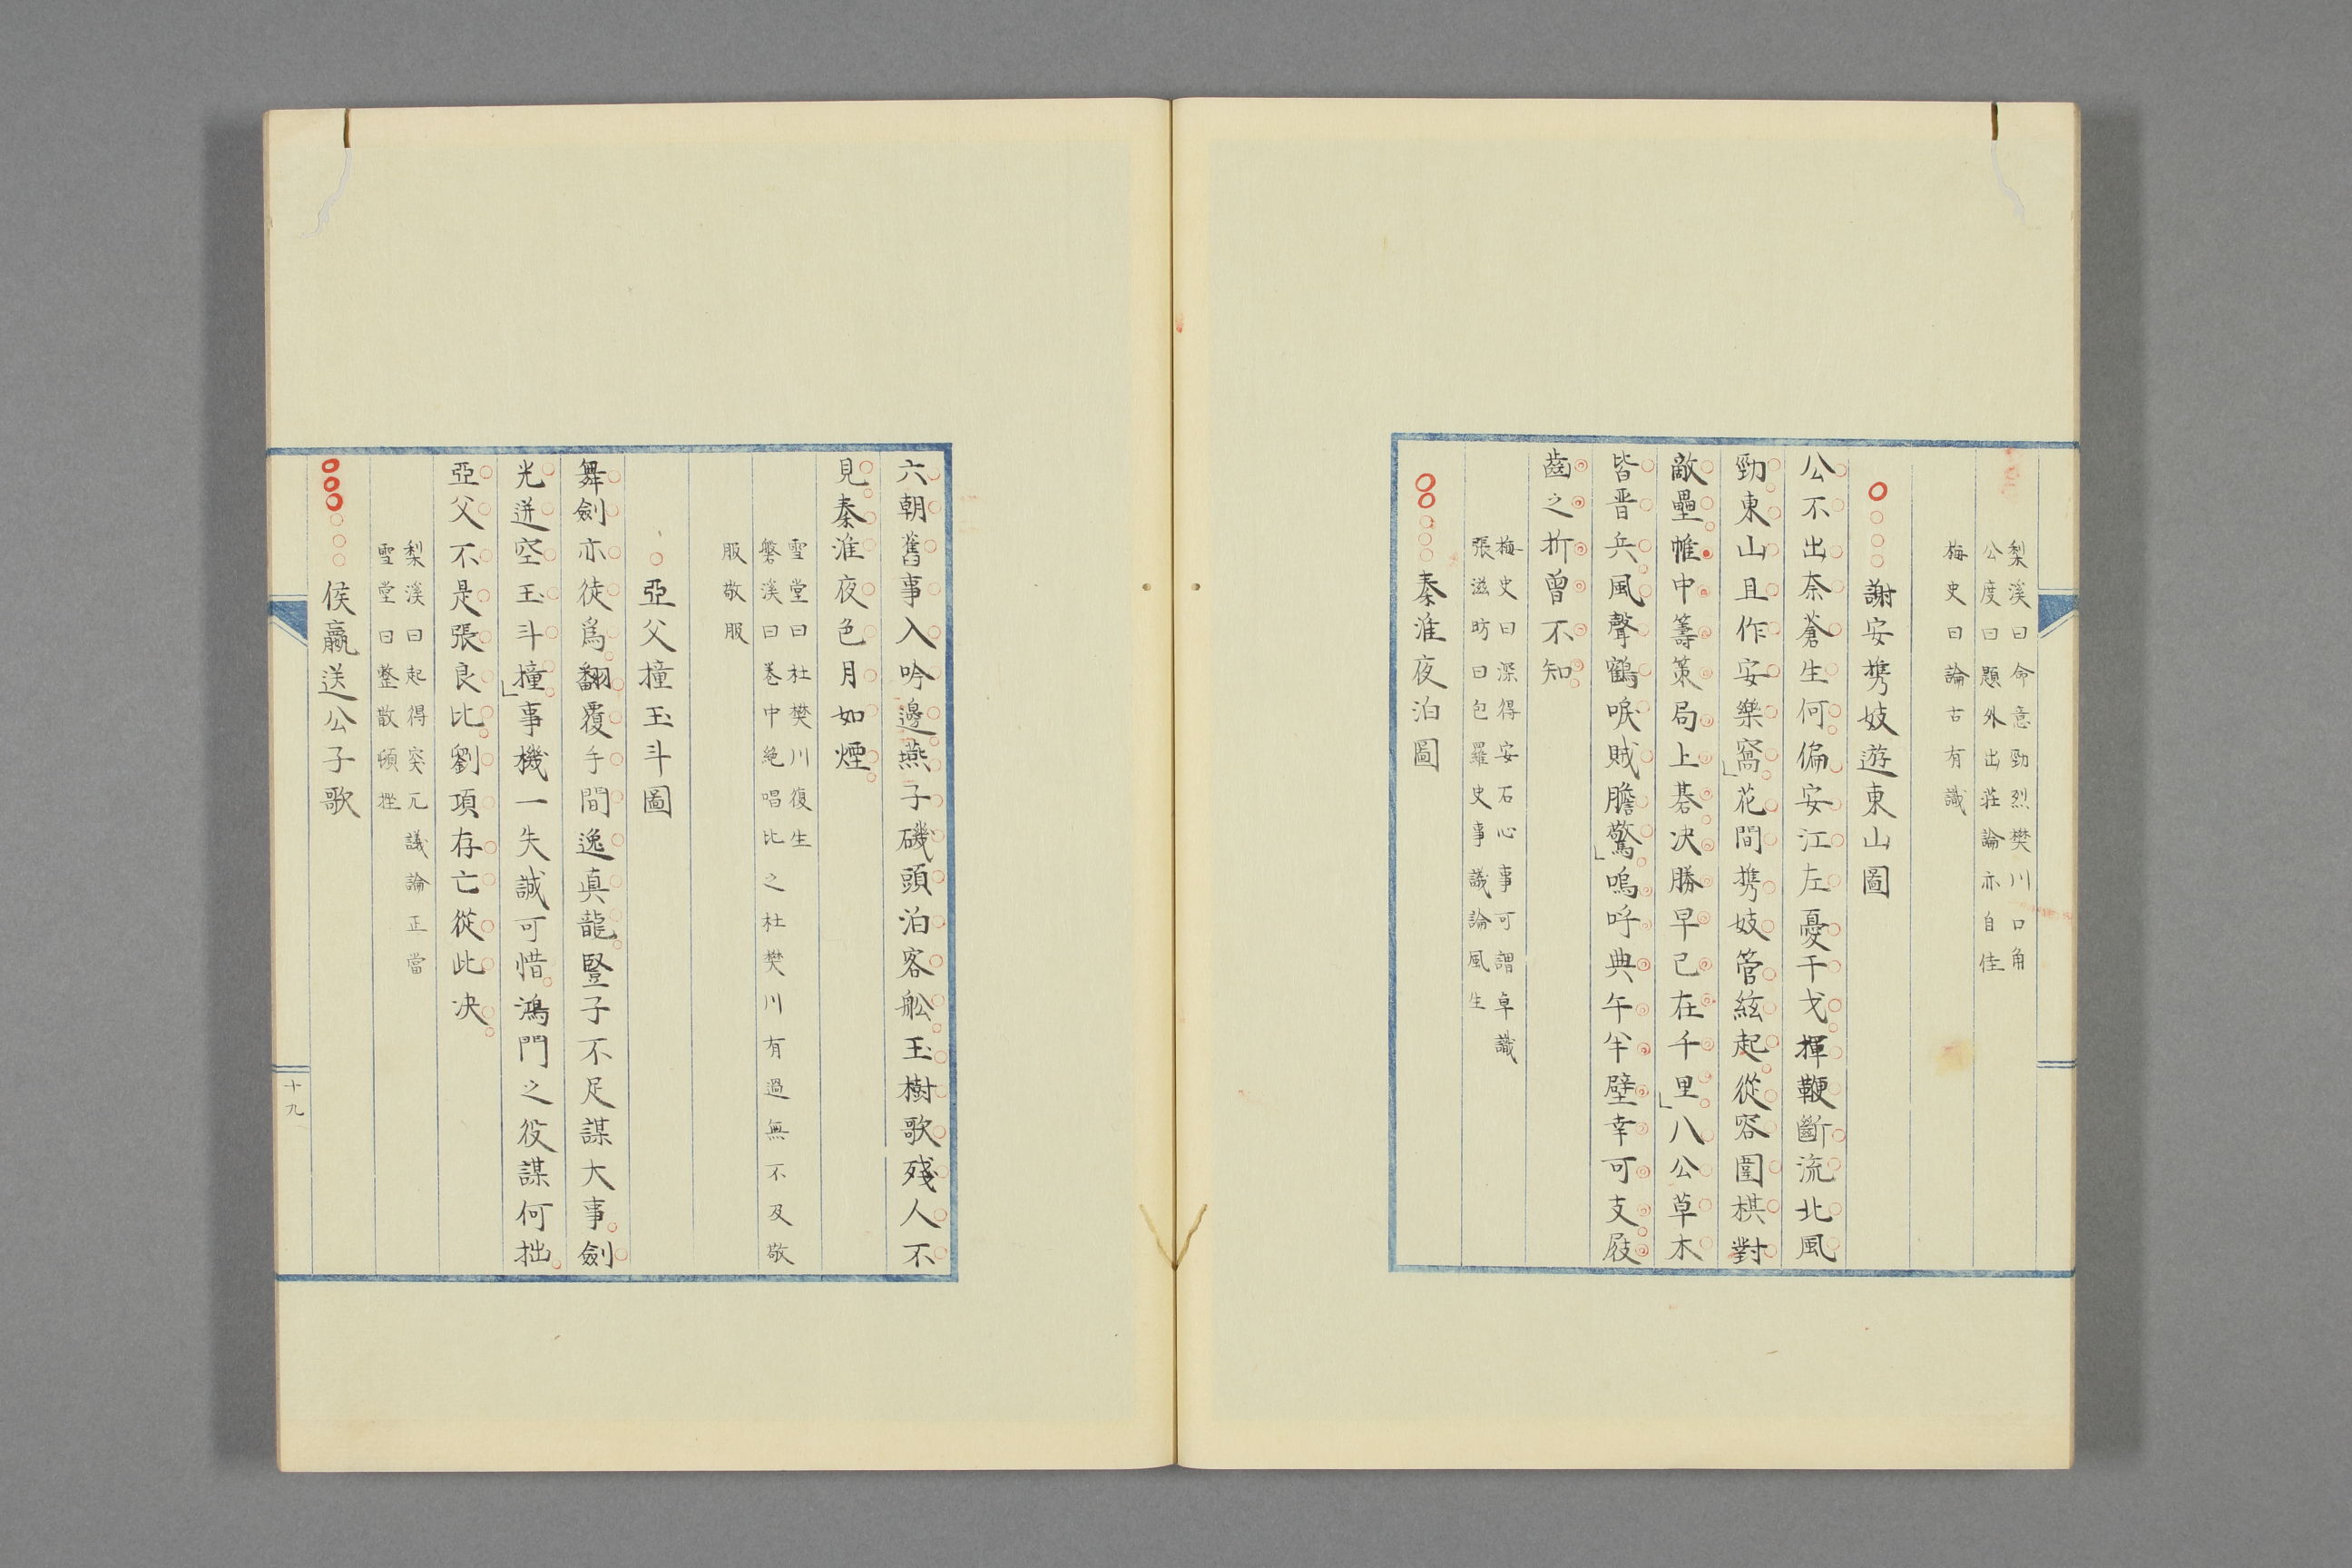 梨溪曰命意勁烈樊川口角
公度曰題外出莊論亦自佳
梅史曰論古有識
謝安携妓遊東山圖
公不出奈蒼生何偏安江左憂干戈揮鞭斷流北風
勁東山且作安樂窩花間携妓管絃起從容圍棋對
敵壘帷中籌策局上碁决勝早已在千里八公草木
皆晋兵風聲鶴唳賊膽驚嗚呼典午半壁幸可支屐
齒之折曽不知
梅史曰深得安石心事可謂卓識
張滋昉曰包羅史事議論風生
秦淮夜泊圖
六朝舊事入吟邊燕子磯頭泊客舩玉樹歌殘人不
見秦淮夜色月如煙
雪堂曰杜樊川復生
磐溪曰巻中絶唱比之杜樊川有過無不及敬
服敬服
亞父撞玉斗圖
舞劍亦徒爲翻覆手間逸真龍豎子不足謀大事劍
光迸空玉斗撞事機一失誠可惜鴻門之役謀何拙
亞父不是張良比劉項存亡從此决
梨溪曰起得突兀議論正當
雪堂曰整散頓挫
侯嬴送公子歌
十九